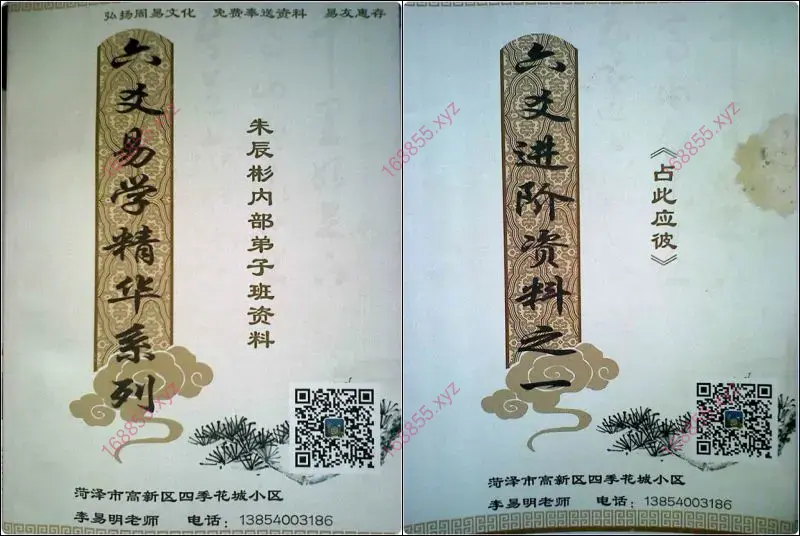 弘扬周易文化 免费奉送资料 易友惠存
六爻易学精华系列
朱辰彬内部弟子班资料
168855.xyz
168855.xyz
168855.xyz
菏泽市高新区四季花城小区
李易明老师 电话：13854003186
六爻进阶资料之一
《占此应彼》
168855.xyz
168855.xyz
168855.xyz
菏泽市高新区四季花城小区
李易明老师 电话：13854003186